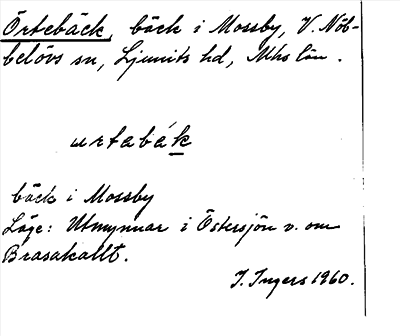 Örtebäck, bäck i Mossby, V. Nöb-
belövs sn, Ljunits hd, Mhs län.
urtabák
bäck i Mossby
Läge: Utmynnar i Östersjön v. om
Brasakallt.
I. Ingers 1960.